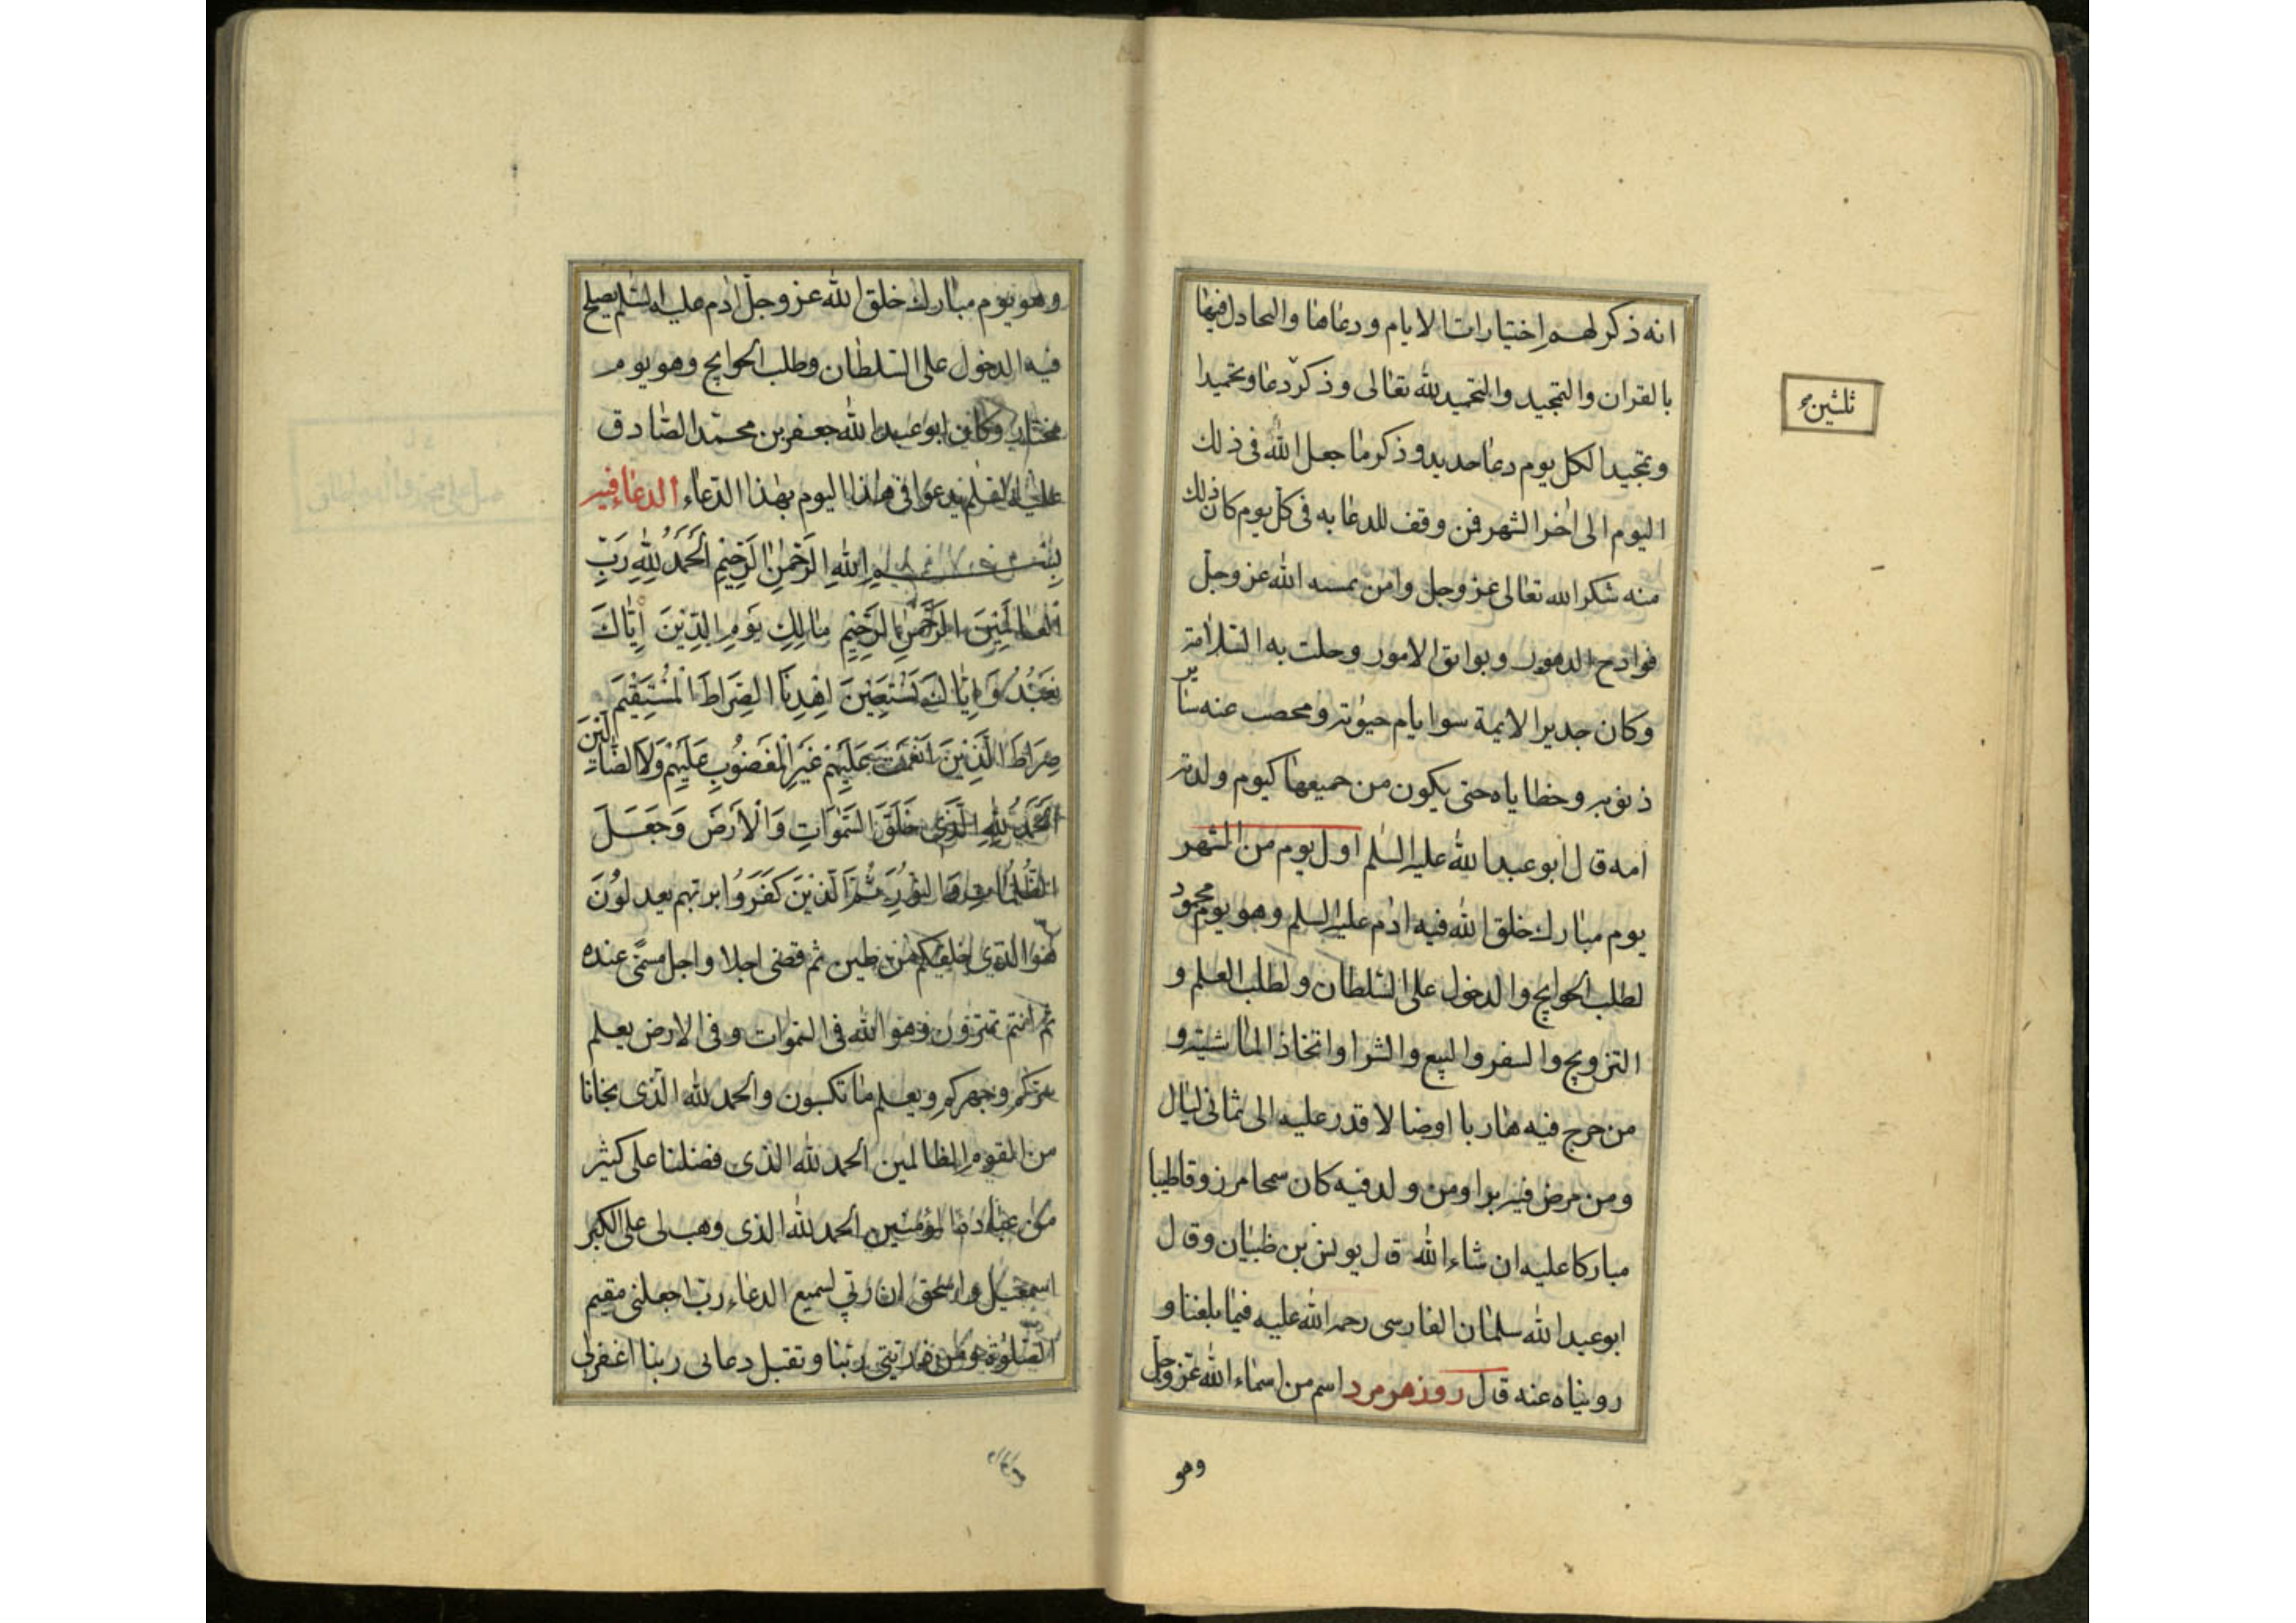 انه ذكر لهم اختيارات الايام ودعاها والتحادل فيها
بالقران والتمجيد والتحميد لله تعالى وذكر دعا وتحميدا
وتمجيدا لكل يوم دعا جديد وذكر ما جعل الله فى ذلك
اليوم الى اخر الشهر فمن وقف للدعا به فى كل يوم كان ذلك
منه شكرا لله تعالى عز وجل وامن بمسه الله عز وجل
فوادح الدهور وبوايق الامور وحلت به السلامة
وكان جديرا الايمة سوا ايام حيوته ومحصت عنه ساير
ذنوبه وخطاياه حتى يكون من جميعها كيوم ولدته
امه قال ابو عبد الله عليه السلم اول يوم من الشهر
يوم مبارك خلق الله فيه ادم عليه السلم وهو يوم محمود
لطلب الحوايج والدخول على السلطان ولطلب العلم و
التزويج والسفر والبيع والشرا واتخاذ الماشية و
من خرج فيه هاربا اوضا لا قدر عليه الى ثمانى ليال
ومن مرض فيه برا ومن ولد فيه كان سمحا مرزوقا طيبا
مباركا عليه ان شاء الله قال يونس بن ظبيان وقال
ابو عبد الله سلمان الفارسى رحمه الله عليه فيما بلغنا و
رويناه عنه قال روز هرمرد اسم من اسماء الله عز وجل
وهو
ثلثين
وهو يوم مبارك خلق الله عز وجل ادم عليه السلم يصلح
فيه الدخول على السلطان وطلب الحوايج وهو يوم
مختار وكان ابو عبد الله جعفر بن محمد الصادق
عليه السلم يدعوا فى هذا اليوم بهذا الدعاء الدعاء فيه
بِسْمِ اللهِ الرَّحْمٰنِ الرَّحِيمِ اَلْحَمْدُ لِلّٰهِ رَبِّ
الْعَالَمِينَ الرَّحْمٰنِ الرَّحِيمِ مَالِكِ يَوْمِ الدِّينَ اِيَّاكَ
نَعْبُدُ وَاِيَّاكَ نَسْتَعِينَ اِهْدِنَا الصِّرَاطَ الْمُسْتَقِيمَ
صِرَاطَ الَّذِينَ اَنْعَمْتَ عَلَيْهِمْ غَيْرِ الْمَغْضُوبِ عَلَيْهِمْ وَلَا الضَّالِّينَ
اَلْحَمْدُ لِلّٰهِ الَّذِى خَلَقَ السَّمٰوَاتِ وَالْاَرْضَ وَجَعَلَ
الظُّلُمَاتِ وَالنُّورَ ثُمَّ الَّذِينَ كَفَرُوا بربهم يعدلُونَ
هو الذى خلقكم من طين ثم قضى اجلا واجل مسمّى عنده
ثم انتم تمترون وهو الله فى السموات وفى الارض يعلم
سركم وجهركم ويعلم ما تكسبون والحمد لله الذى نجانا
من القوم الظالمين الحمد لله الذى فضلنا على كثير
من عباده المؤمنين الحمد لله الذى وهب لى على الكبر
اسمعيل واسحق ان ربى لسميع الدعاء رب اجعلنى مقيم
الصلوة ومن ذريتى ربنا وتقبل دعائى ربنا اغفر لى